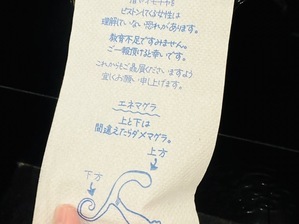 ピストンしてくる女性は
理解していない恐れがあります。
教育不足ですみません。
ご一報頂けると幸いです。
これからもご贔屓くださいますよう
宜くお願い申し上げます。
エネマグラ
上と下は
間違えたらダメマグラ。
上方
下方